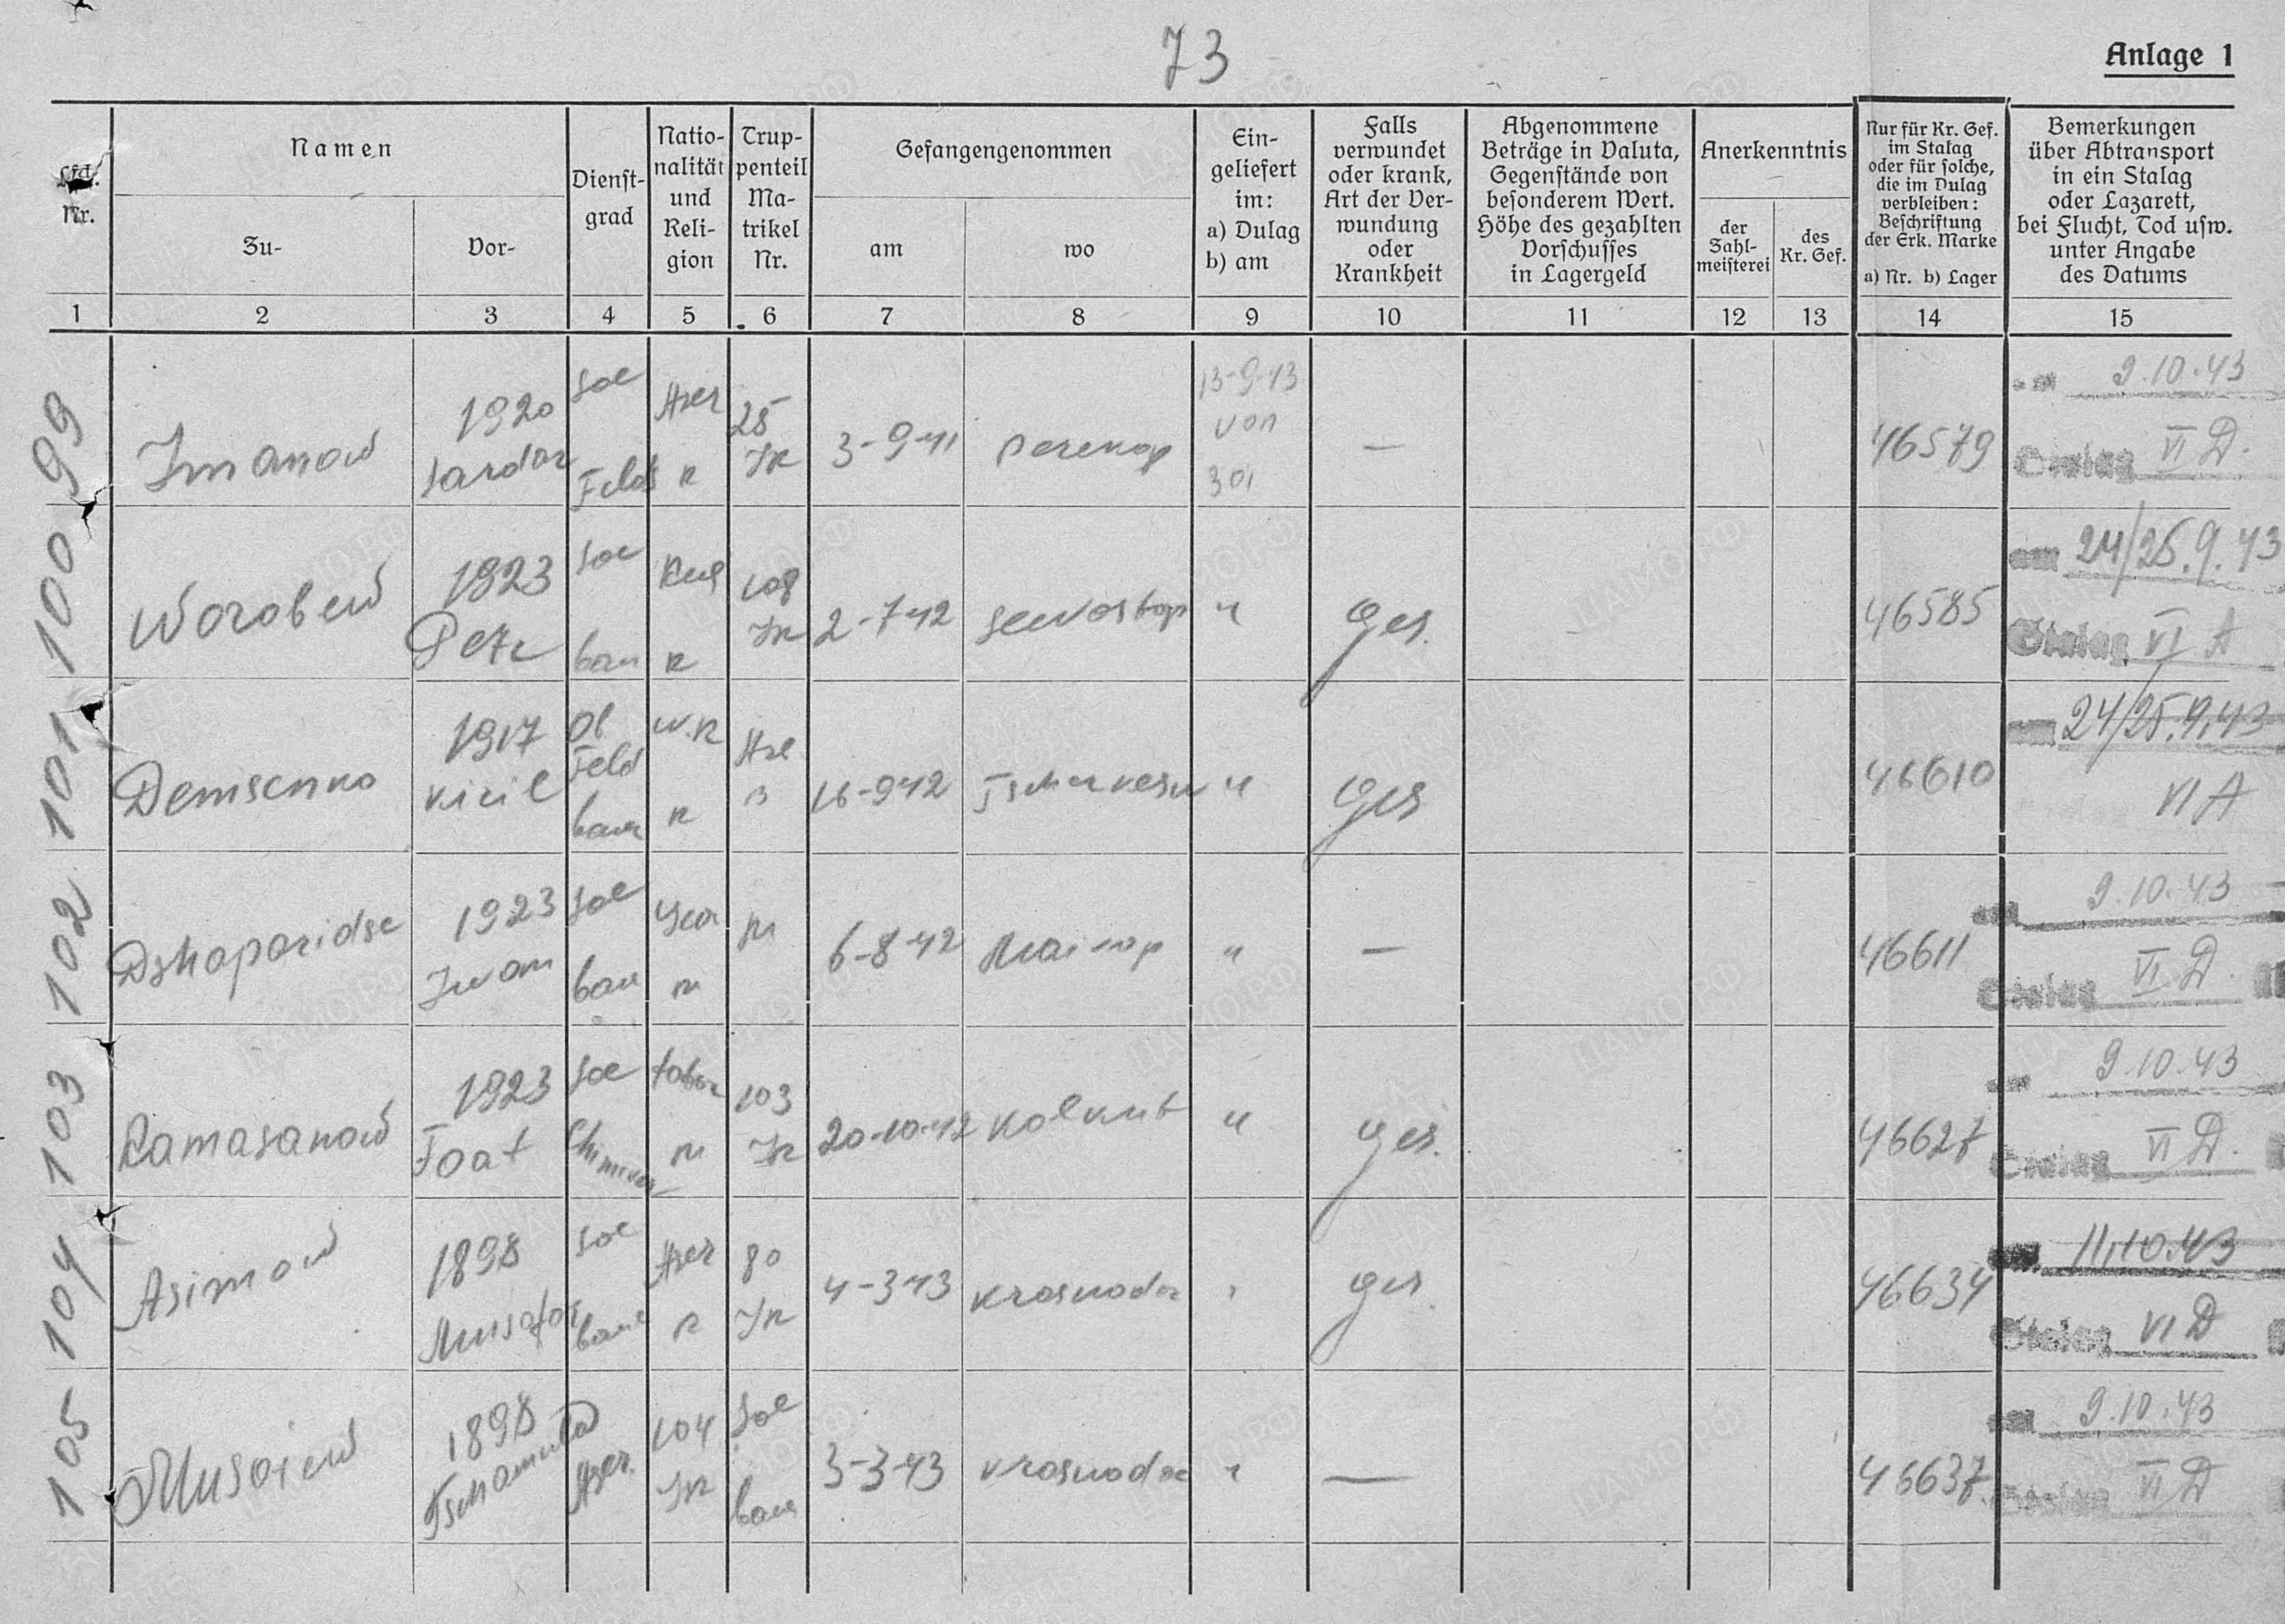 73
Anlage 1
Lfd. Nr.
Namen
Zu-
Vor-
Dienst-
grad
Natio-
nalität
und
Reli-
gion
Trup-
penteil
Ma-
trikel
Nr.
Gefangengenommen
am
wo
Ein-
geliefert
im:
a) Dulag
b) am
Falls
verwundet
oder krank,
Art der Ver-
wundung
oder
Krankheit
Abgenommene
Beträge in Valuta,
Gegenstände von
besonderem Wert.
Höhe des gezahlten
Vorschusses
in Lagergeld
Anerkenntnis
der
Zahl-
meisterei
des
Kr. Gef.
Nur für Kr. Gef.
im Stalag
oder für solche,
die im Dulag
verbleiben:
Beschriftung
der Erk. Marke
a) Nr. b) Lager
Bemerkungen
über Abtransport
in ein Stalag
oder Lazarett,
bei Flucht, Tod usw.
unter Angabe
des Datums
1 2 3 4 5 6 7 8 9 10 11 12 13 14 15
99 Imanow 1920 Sardar Sol Feld Aser R 25 IR 3-9-41 Perekop 13-9-43 von 301 — 46579 9.10.43 Stalag VI D.
100 Worobew 1923 Petr Sol bau Rus R 108 IR 2-7-42 Sewostop " ges. 46585 am 24/25.9.43 Stalag VI A
101 Demsenko 1917 Kiril Ob Feld bau W.R R 16-9-42 " ges 46610 24/25.9.43 VI A
102 Dshaparidse 1923 Iwan Sol bau M 6-8-42 Maikop " — 46611 9.10.43 Stalag VI D.
103 Ramasanow 1923 Foat Sol M 103 IR 20-10-42 " ges. 46627 9.10.43 Stalag VI D.
104 Asimow 1898 Sol bau Aser R 80 IR 4-3-43 Krasnodar " ges 46634 11.10.43 Stalag VI D
105 Musaiew 1898 Aser. 104 IR Sol bau 3-3-43 Krasnodar " — 46637 9.10.43 Stalag VI D